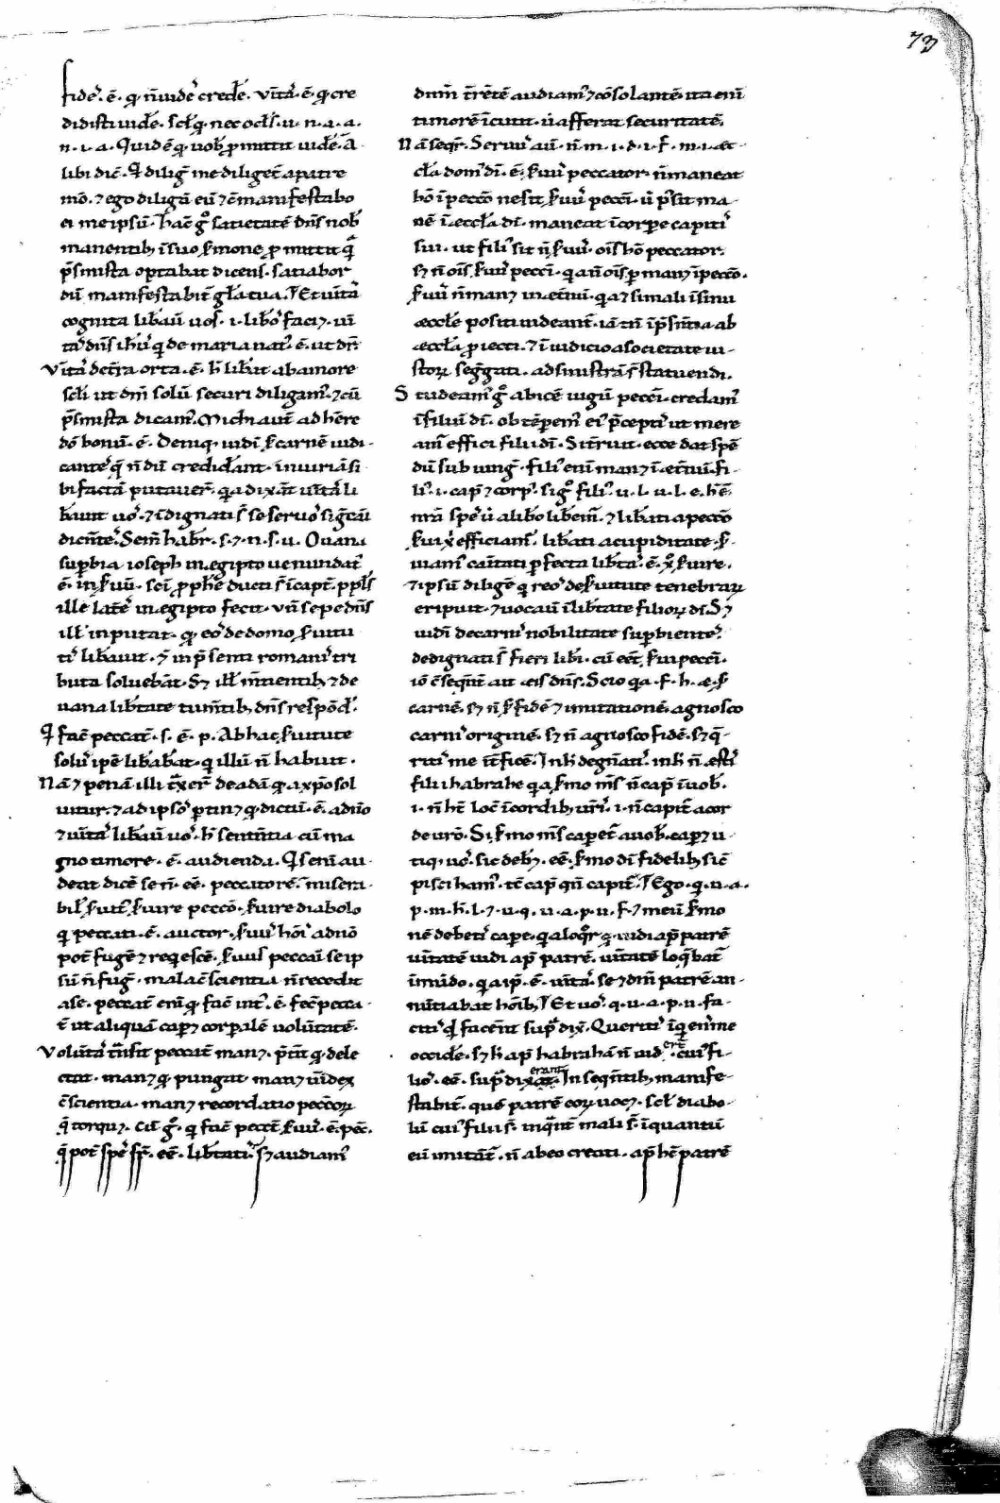 73
fideſ. ē. q̄ n̄ uideſ crede. Vītaſ. ē. q̄ cre
didiſti uide. ſcl̄ꝫ q̄. nec ocl̄ſ. u. n. a. a.
n. i. a. Quid ē q̄ uob̄ ꝓmittit uide. A
libi diċ. Qͥ diliḡ me diliget̄ a patre
mō. ⁊ ego diligā eū ⁊ ē manifeſtabo
ei meipſū. hāc g̊ ſatietatē dn̄ſ nob̄
manentibꝫ ī ſuo ẜmone ꝓmittit q̄
pſ̄miſta optabat dicenſ. Satiabor
dū manifeſtabit̄ gl̄a tua. Et uītaſ
cognita lib̄auī uoſ. i. lib̄oſ faciꝫ. uī
taſ dn̄ſ ih̄uſ q̄ de maria natuſ. ē. ut dn̄
Vītaſ de t̄ra orta. ē. h̄ lib̄it ab amore
ſcl̄i ut dm̄ ſolū ſecuri diligam̄. ⁊ cū
pſ̄miſta dicam̄. Michi aut̄ adh̄ere
dō bonū. ē. Deniqꝫ uidī ẜ carnē iudi-
canteſ q̄ n̄dū credid̄ant. iniuriā ſi
bi factā putauer̄. q̄a dixat̄ uītaſ li
b̄auit uoſ. ⁊ īdignati ſ̄ ſe ſeruoſ ſiḡcaū
dicn̄teſ. Sem̄ habr̄. ſ. ⁊. n. ſ. u. O uana
ſuꝑbia ioſeph in egipto uenundatuſ
ē. in ẜuū. ſc̄i ꝓphe ducti ſ̄ ī capt̄. ppl̄ſ
ille lateſ in egipto fecit. Vn̄ ſepe dn̄ſ
ill̄ inputat. q̄ eoſ de domo ẜuitu
tiſ lib̄auit. ⁊ in p̄ſenti romaniſ tri
buta ſoluebāt. Sꝫ ill̄ m̄tientibꝫ ⁊ de
uana lib̄tate tum̄tibꝫ dn̄ſ reſpōd̄.
Qͥ facͥ peccat̄. ſ. ē. p. Ab hac ẜuitute
ſoluſ ip̄e lib̄abat. q̄ illū n̄ habuit.
Nā ⁊ penā illi t̄xer̄ de adā q̄ a xp̄o ſol
uitur. ⁊ ad ipſoſ ꝑtinꝫ q̄ dictū. ē. a dn̄o
⁊ uītaſ lib̄auī uoſ. h̄ ſentn̄tia cū ma
gno timore. ē. audienda. Qͥ ſeruū au-
deat dicē ſe n̄. eē. peccatorē. miſera-
bil̄ ẜuit̄ ẜuire peccō. ẜuire diabolo
q̄ peccati. ē. auctor. ẜuuſ hoīſ ad nō
pot̄ fugē ⁊ reqeſcē. ẜuuſ peccati ſe ip
ſū n̄ fuḡ. mala cſ̄cientia n̄ recedit
a ſe. peccat̄ enī q̄ facͥ intuſ. ē. fec̄ pecca-
t̄ ut aliquā capꝫ corꝑalē uolūtatē.
Voluntaſ tn̄ſit peccat̄ manꝫ. p̄t̄it q̄ dele
ctat. manꝫ q̄ pungat manꝫ iudex
cſ̄cientia. manꝫ recordatio peccoꝝ
q̄ torquꝫ. Cū g̊. q̄ facͥ peccat̄ ẜuuſ. ē. pec̄.
q̄ pot̄ ſpeſ ſſ̄. eē. lib̄tatiſ. Sꝫ audiam̄
dnm̄ t̄rentē audiam̄ ⁊ cōſolantē. ita enī
timorē īcutit. ū afferat ſecuritatē.
Nā ſeqr̄. Seruuſ aū. n̄. m. i. d. i. f. m. i. æ. Ec
cl̄a domuſ dī. ē. ẜuuſ peccator. n̄ maneat
hō ī pecco neſit ẜuuſ pecci. ū p̄ſit ma-
nē. ī. æccl̄a dī. maneat ī corꝑe capitiſ
ſui. ut filiuſ ſit n̄ ẜuuſ. oīſ hō peccator.
Sꝫ n̄ oīſ ẜuuſ pecci. q̄a n̄ oīſ ꝑmanꝫ ī pecco.
ẜuuſ n̄ manꝫ in æt̄nū. q̄a ⁊ ſi mali ī ſinu
æccle poſiti uideant̄. iā tn̄ ī p̄ſn̄tia ab
æccl̄a ꝓiecti. ⁊ ī iudicio a ſocietate iu-
ſtoꝝ ſegḡgati. ad ſiniſtrā ſ̄ ſtatuendi.
Studeam̄ g̊ abicē iugū pecci. credam̄
ī filiū dī. obtēꝑem̄ eiſ p̄ceptiſ ut mere
am̄ effici filii dī. Sn̄t̄uit. ecce dat ſpē
dū ſubiunḡ. filiuſ enī manꝫ ī. æt̄nū. fi-
liuſ. i. capͥ ⁊ corpͥ. ſi g̊ filiuſ. u. l. u. l. e. hēt
nrā ſpeſ ū a lib̄o lib̄em̄. ⁊ lib̄ati a pecco
ẜui xͥ efficiam̄. lib̄ati a cupiditate. ẜ-
uiam̄ caritati ꝑfecta lib̄taſ. ē. xͦ ẜuire.
⁊ ipſū diligē q̄ reoſ de ẜuitute tenebraꝝ
eripuit. ⁊ uocauī ī lib̄tate filioꝝ dī. Sꝫ
iudī de carniſ nobilitate ſuꝑbienteſ
dedignati ſ̄ fieri lib̄i. cū eēt̄ ẜui pecci.
iō cſ̄eqn̄t̄ ait eiſ dn̄ſ. Scio q̄a. f. h. æ. ẜ
carnē. ſꝫ n̄ ẜ fidē ⁊ imitationē. agnoſco
carniſ originē. ſꝫ n̄ agnoſco fidē. ſꝫ q̄-
ritiſ me int̄ficē. In h̄ degn̄atiſ. in h̄ n̄ eſtiſ
filii habrahe q̄a ẜmo mſ̄ n̄ capͥ ī uob̄.
i. n̄ ht̄ locū ī cordibꝫ urīſ. i. n̄ capit̄ a cor
de urō. Si ẜmo mſ̄ caperet̄ a uob̄. capꝫ u-
tiqꝫ uoſ. ſic debꝫ. eē. ẜmo dī fidelibꝫ ſic̄
piſci hamuſ. t̄c capͥ qn̄ capit̄. Ego. q. u. a.
p. m. h̄. l. ⁊. u. q. u. a. p. u. f. ⁊ meū ẜmo
nē debetiſ capē. q̄a loqr̄ q̄ uidi ap̄ patrē
uītatē uidi ap̄ patrē. uītatē loqbat̄
ī mūdo. q̄a ip̄. ē. uītaſ. ſe ⁊ dm̄ patrē an-
nūtiabat hoībꝫ. Et uoſ. q. u. a. p. u. fa-
citiſ q̄ facēnt ſupͣ dix̄. Queritiſ īq̄ enim me
occide. ſꝫ h̄ ap̄ habrahā n̄ uid̄ eritiſ. cuiſ fi-
lioſ. eē. ſupͣ dixat̄ erantſ. In ſeqn̄tibꝫ manife-
ſtabit̄. quē patrē eoꝝ uocꝫ. ſcl̄. diabo-
lū cuiſ filii ſ̄. inqn̄t̄ mali ſ̄. ī quantū
eū imitāt̄. n̄ ab eo creati. ap̄ h̄c̄ patrē